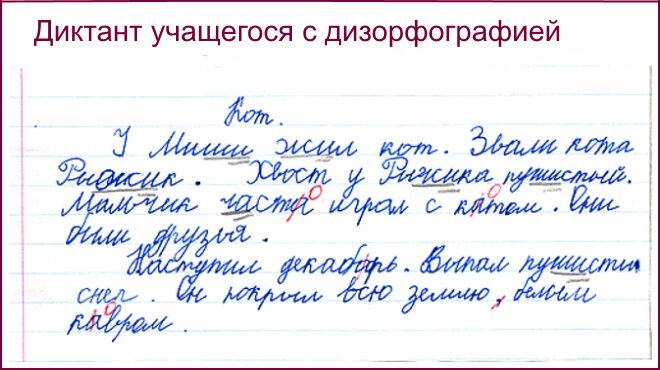 Диктант учащегося с дизорфографией
Кот.
У Миши жил кот. Звали кота
Рыжик. Хвост у Рыжика пушистый.
Мальчик часта играл с катом. Они
были друзья.
Наступил декабарь. Выпал пушисты
снег. Он покрыл всю землю, белым
кавром.